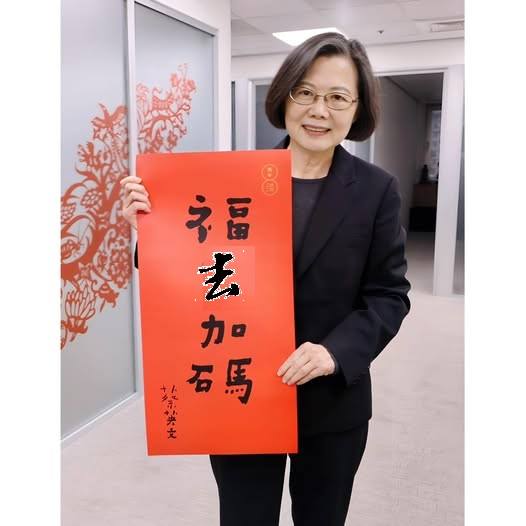 福
去
加
碼
蔡英文